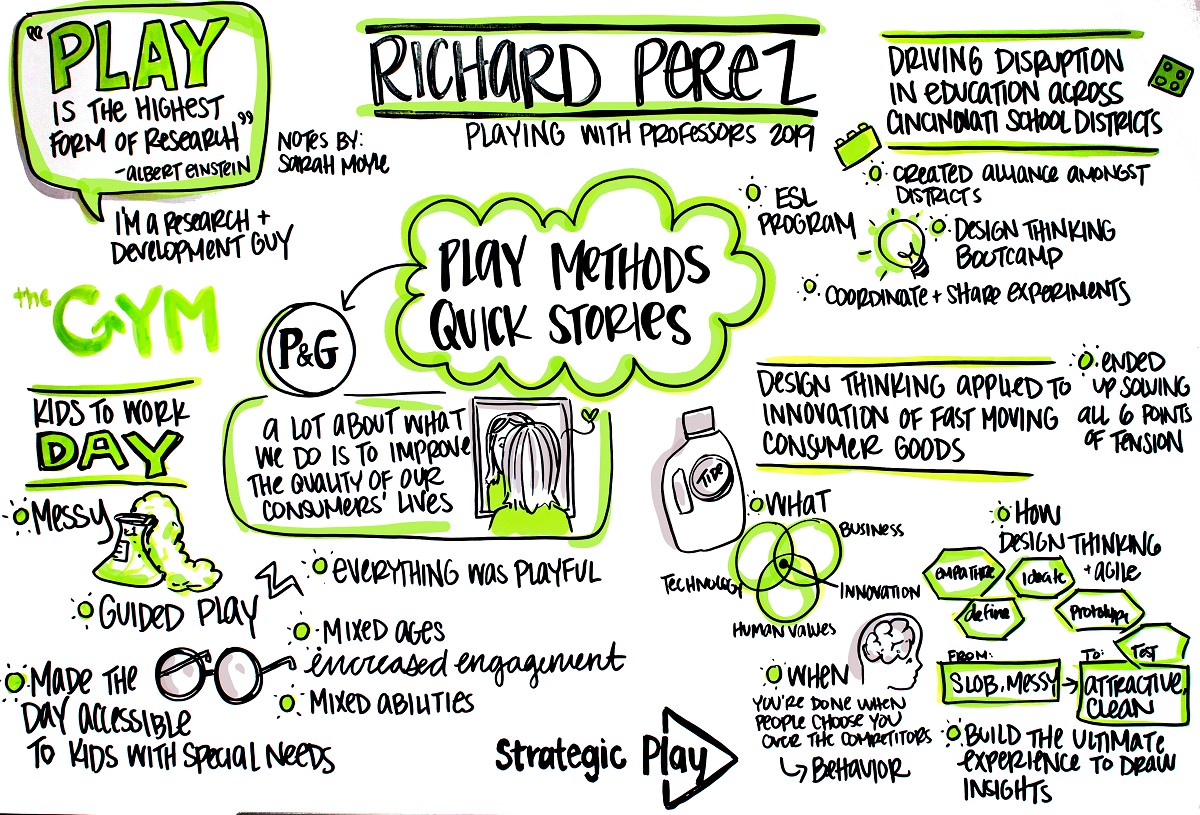 "PLAY
IS THE HIGHEST
FORM OF RESEARCH"
-ALBERT EINSTEIN
NOTES BY:
SARAH MOYLE
I'M A RESEARCH +
DEVELOPMENT GUY
RICHARD PEREZ
PLAYING WITH PROFESSORS 2019
DRIVING DISRUPTION
IN EDUCATION ACROSS
CINCINNATI SCHOOL DISTRICTS
CREATED ALLIANCE AMONGST
DISTRICTS
ESL
PROGRAM
DESIGN THINKING
BOOTCAMP
COORDINATE + SHARE EXPERIMENTS
PLAY METHODS
QUICK STORIES
the GYM
P&G
KIDS TO WORK
DAY
A LOT ABOUT WHAT
WE DO IS TO IMPROVE
THE QUALITY OF OUR
CONSUMERS' LIVES
MESSY
GUIDED PLAY
EVERYTHING WAS PLAYFUL
MIXED AGES
increased engagement
MIXED ABILITIES
MADE THE
DAY ACCESSIBLE
TO KIDS WITH SPECIAL NEEDS
Strategic Play
DESIGN THINKING APPLIED TO
INNOVATION OF FAST MOVING
CONSUMER GOODS
ENDED
UP SOLVING
ALL 6 POINTS
OF TENSION
TIDE
WHAT
BUSINESS
TECHNOLOGY
INNOVATION
HUMAN VALUES
HOW
DESIGN THINKING
+ AGILE
EMPATHIZE
Ideate
define
Prototype
TEST
FROM:
SLOB, MESSY
TO:
ATTRACTIVE,
CLEAN
WHEN
YOU'RE DONE WHEN
PEOPLE CHOOSE YOU
OVER THE COMPETITORS
BEHAVIOR
BUILD THE ULTIMATE
EXPERIENCE TO DRAW
INSIGHTS